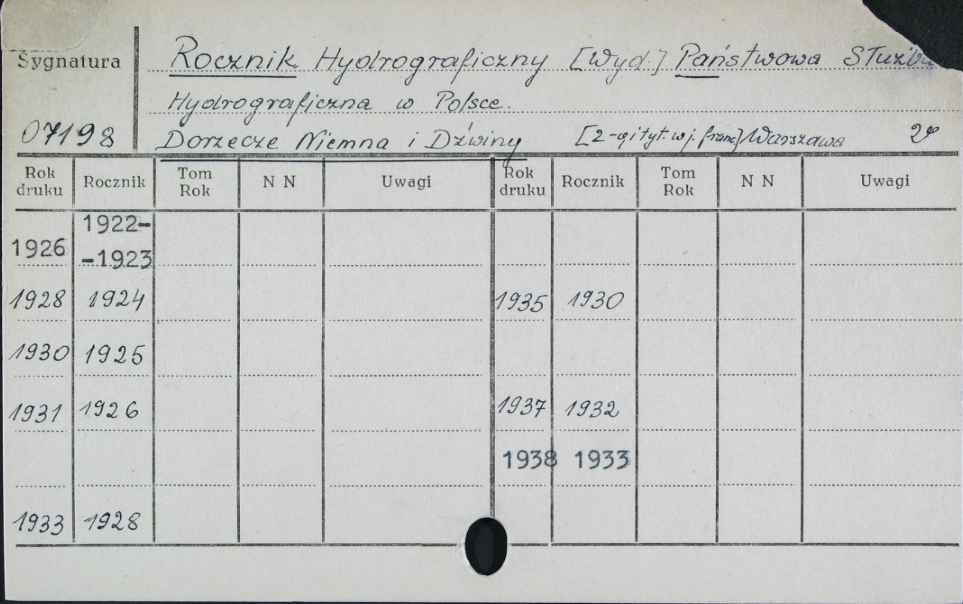 Sygnatura
Rocznik Hydrograficzny [Wyd.] Państwowa Służba
Hydrograficzna w Polsce.
07198
Dorzecze Niemna i Dźwiny [2-gi tyt w j. franc] Warszawa
Rok druku Rocznik Tom Rok N N Uwagi Rok druku Rocznik Tom Rok N N Uwagi
1926 1922- -1923
1928 1924 1935 1930
1930 1925
1931 1926 1937 1932
1938 1933
1933 1928